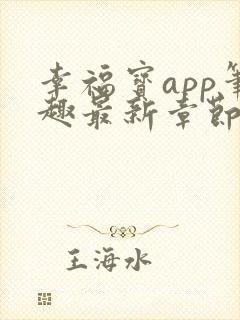 幸福宝app笔
趣最新章节
王海水